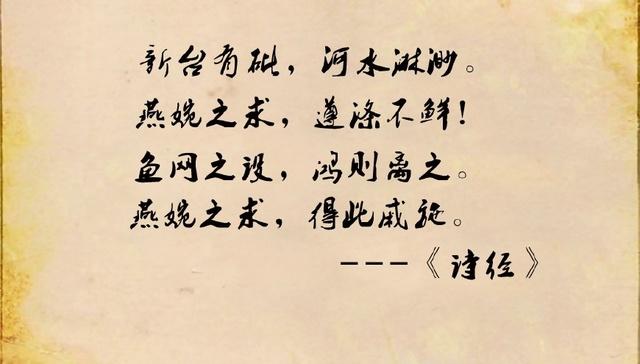 新台有砒，河水淋渺。
燕婉之求，遵涤不鲜！
鱼网之设，鸿则离之。
燕婉之求，得此戚施。
---《诗经》